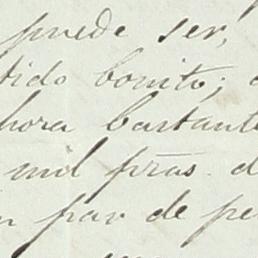 puede ser,
tido bonito;
hora bastante
mil p̃tas. d
par de pe